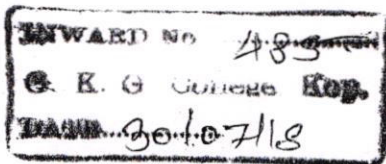 INWARD No 483
G. K. G College Kop.
DATE 30/07/18